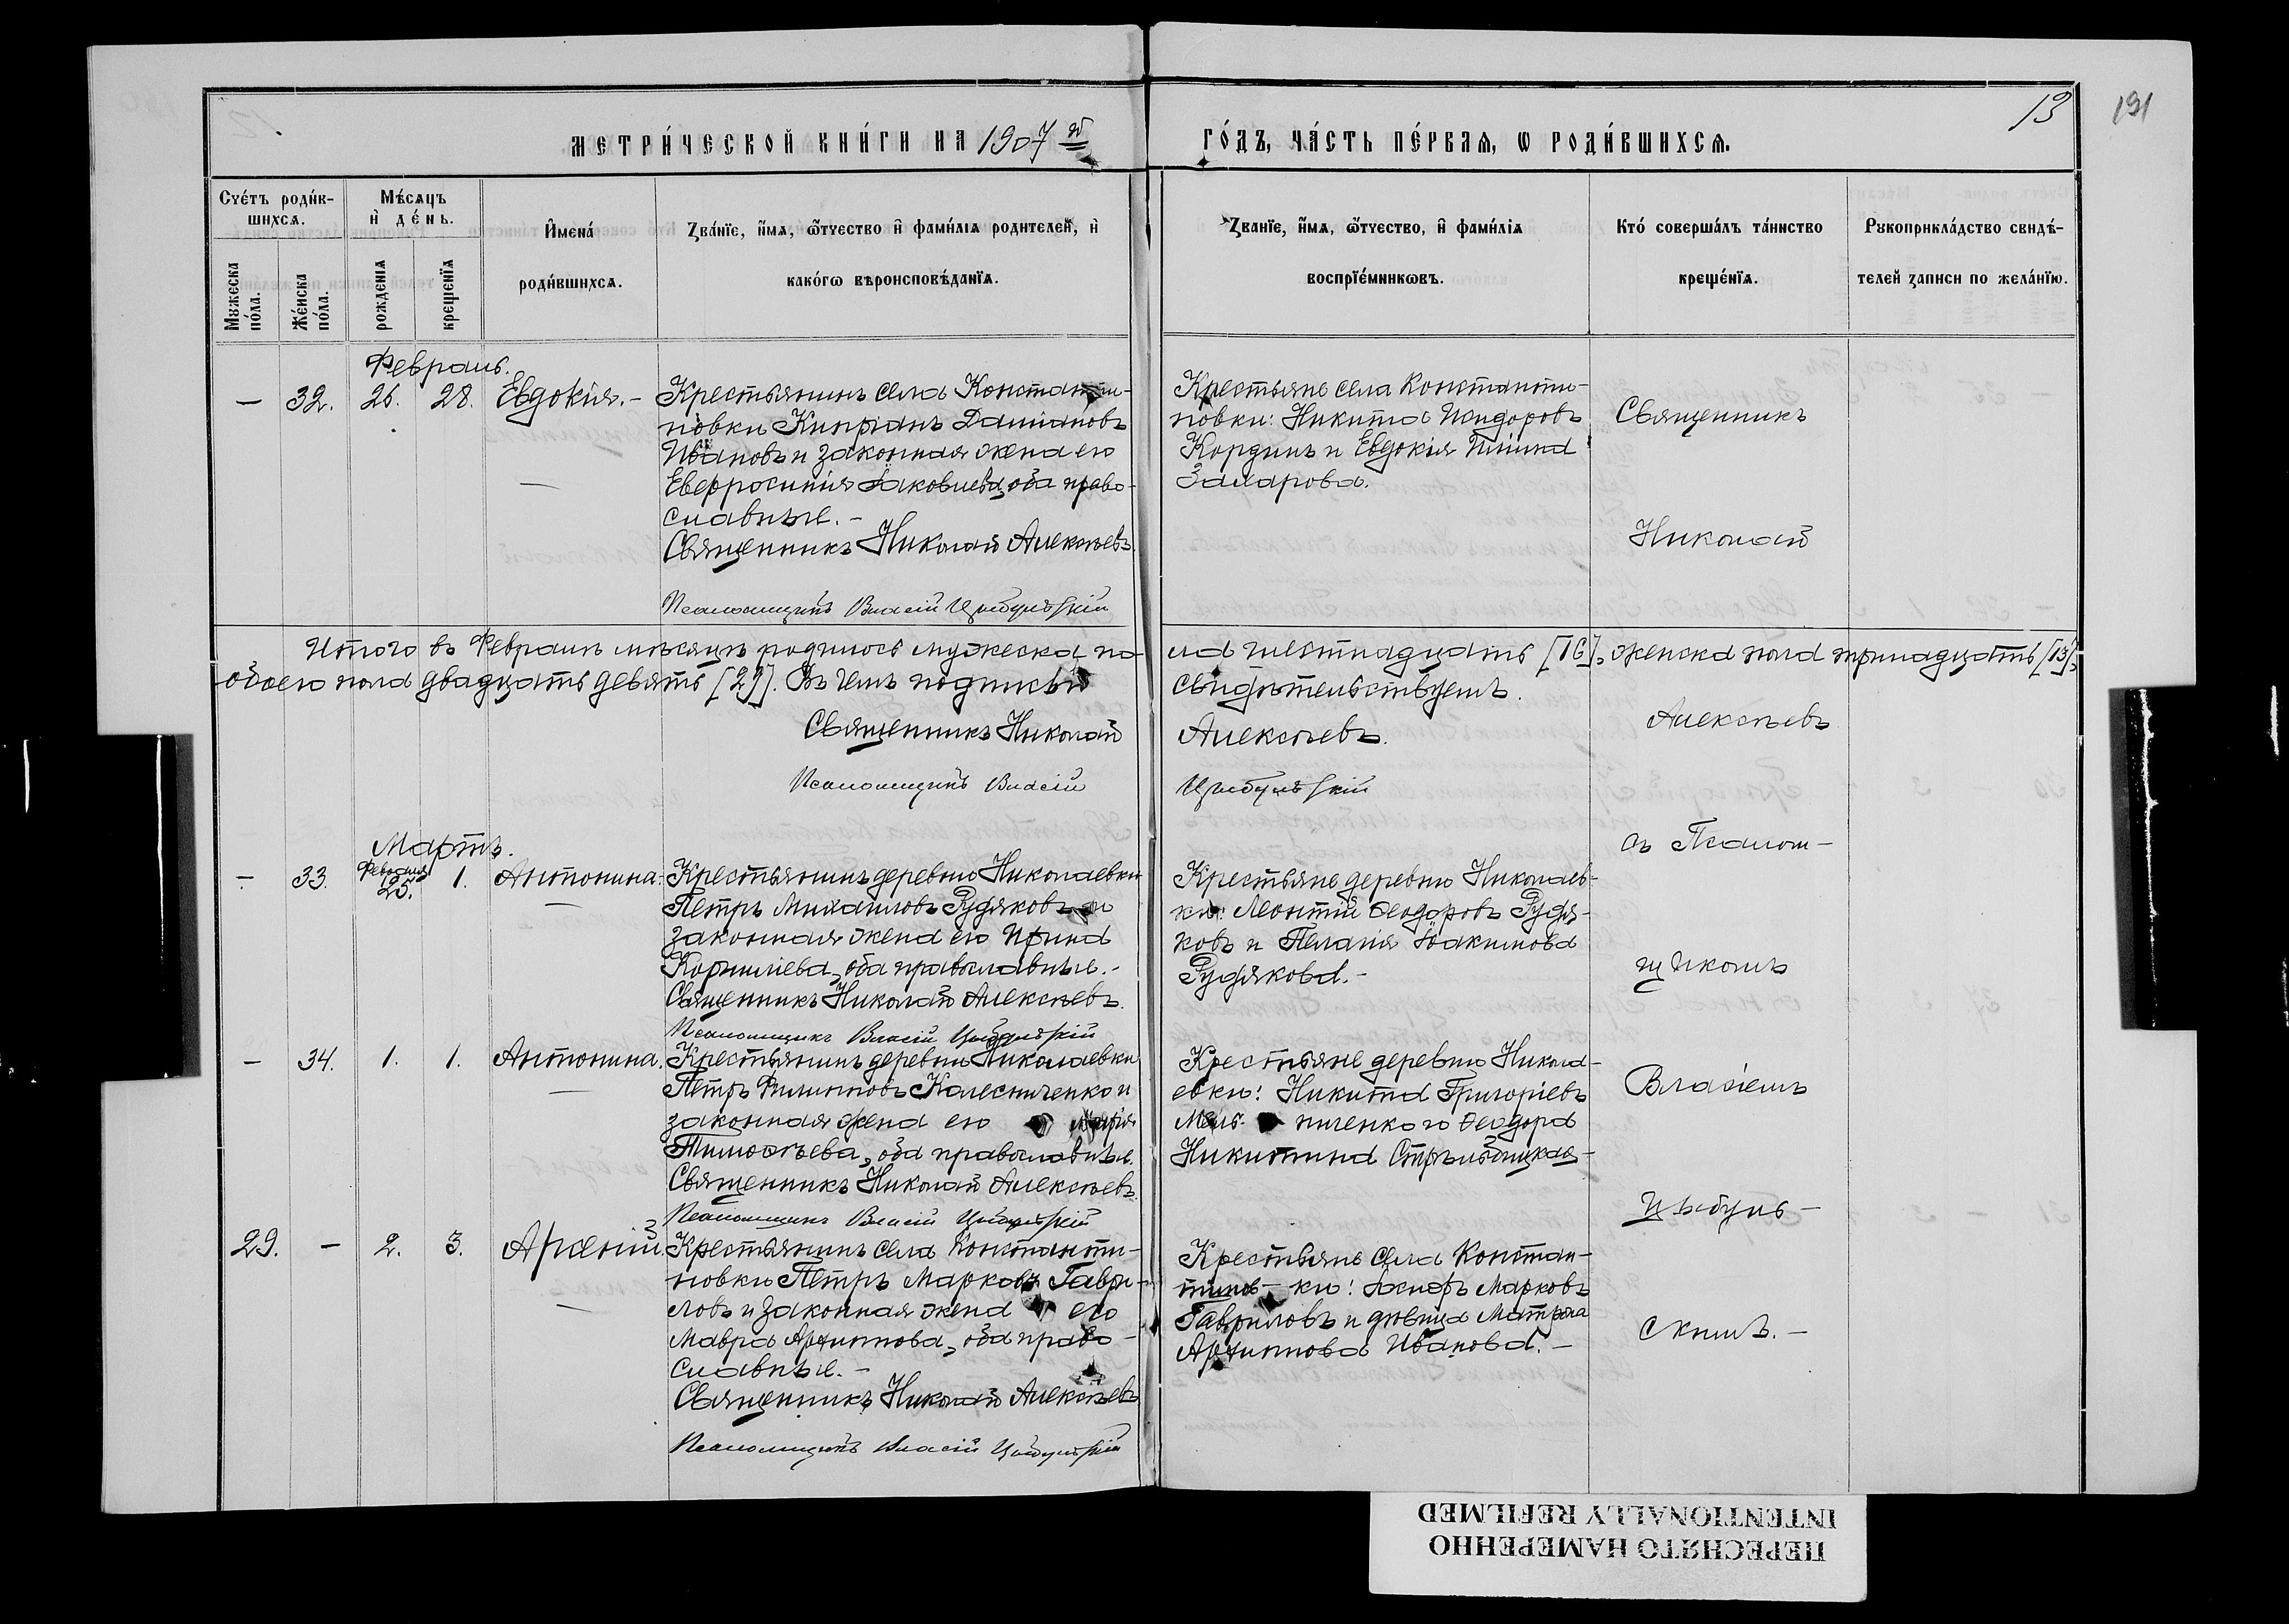 13
191
МЕТРИ́ЧЕСКОЙ КНИ́ГИ НА 1907 й
ГО́ДЪ, ЧА́СТЬ ПЕ́РВАѦ, Ѡ РОДИ́ВШИХСѦ.
Сче́тъ роди́в-
шихсѧ.
Мужеска
по́ла.
Же́нска
по́ла.
Мѣ́сѧцъ
и҆ де́нь.
рожденїѧ
крещенїѧ
И҆мена́
роди́вшихсѧ.
Зва́нїе, и҆́мѧ, ѻ҆́тчество и҆ фами́лїѧ родителей, и҆
како́гѡ вѣроисповѣ́данїѧ.
Зва́нїе, и҆́мѧ, ѻ҆́тчество, и҆ фами́лїѧ
воспрїе́мникѡвъ.
Кто́ соверша́лъ та́инство
креще́нїѧ.
Рукоприкла́дство свидѣ́-
телей записи по жела́нїю.
Февраль.
— 32. 26. 28. Евдокія. –
Крестьянинъ села Константи-
новки Кипріанъ Даміановъ
Ивановъ и законная жена его
Евфросинія Іаковлева, оба право-
славные. –
Священникъ Николай Алексѣевъ.
Псаломщикъ Власій Цыбульскій
Крестьяне села Константи-
новки: Никита Исидоровъ
Кординъ и Евдокія
Захарова.
Священникъ
Николай
Итого въ Февралѣ мѣсяцѣ родилось мужеска по-
ла шестнадцать [16], женска пола тринадцать [13],
обоего пола двадцать девять [29]. Въ чемъ подписью
свидѣтельствуемъ.
Священникъ Николай
Алексѣевъ.
Псаломщикъ Власій
Цыбульскій
Алексѣевъ
Мартъ.
— 33. Февраля 25. 1. Антонина.
Крестьянинъ деревни Николаевки
Петръ Михаиловъ Рудяковъ и
законная жена его Ирина
Корнилиева, оба православные. –
Священникъ Николай Алексѣевъ.
Псаломщикъ Власій Цыбульскій
Крестьяне деревни Николаев-
ки: Леонтій Ѳеодоровъ Рудя-
ковъ и Пелагія Іоакимова
Рудякова. –
съ Псалом-
щикомъ
— 34. 1. 1. Антонина.
Крестьянинъ деревни Николаевки
Петръ Филипповъ Колесниченко и
законная жена его Марія
Тимоѳеева, оба православные.
Священникъ Николай Алексѣевъ.
Псаломщикъ Власій Цыбульскій
Крестьяне деревни Никола-
евки: Никита Григоріевъ
Мель- ниченко и Ѳеодора
Никитина Стрѣльбицкая –
Власіемъ
Цыбуль-
29. — 2. 3. Арсеній.
Крестьянинъ села Константи-
новки Петръ Марковъ Гаври-
ловъ и законная жена его
Мавра Архиппова, оба право-
славные. –
Священникъ Николай Алексѣевъ
Псаломщикъ Власій Цыбульскій
Крестьяне села Констан-
тинов- ки: Іосифъ Марковъ
Гавриловъ и дѣвица Матрона
Архиппова Иванова. –
скимъ. –
ПЕРЕСНЯТО НАМЕРЕННО
INTENTIONALLY REFILMED